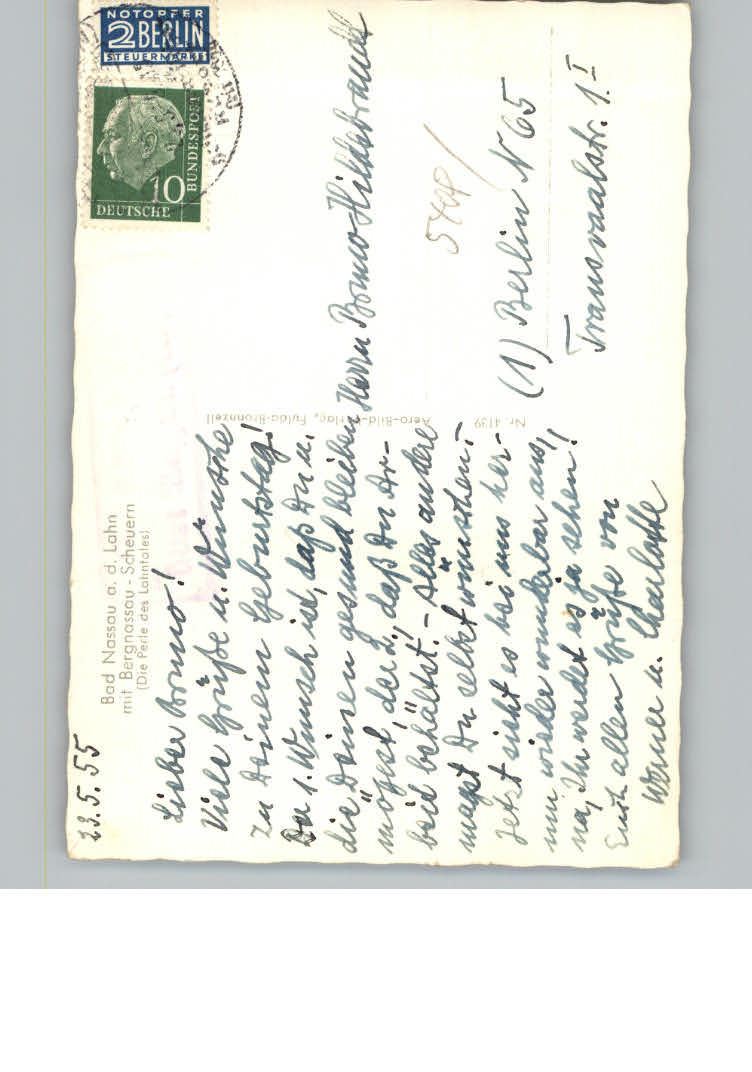 Bad Nassau a. d. Lahn
mit Bergnassau - Scheuern
(Die Perle des Lahntales)
23.5.55
Lieber Bruno!
Viele Grüße u. Wünsche
zu Deinem Geburtstag!
Der 1. Wunsch ist, daß Du u.
die Deinen gesund bleiben
mögest, der 2., daß Du Ar-
beit behältst! - Alles andere
magst Du selbst wünschen. -
Jetzt sieht es bei uns her-
um wieder wunderbar aus,
na, Ihr werdet es ja sehen!
Euch allen Grüße von
Werner u. Charlotte
Nr. 4139
Aero-Bild-Verlag, Fulda-Bronnzell
NOTOPFER
2 BERLIN
STEUERMARKE
10
DEUTSCHE
BUNDESPOST
Herrn Bruno Hildebrandt
5408/
(1) Berlin N 65
Transvaalstr. 1.I